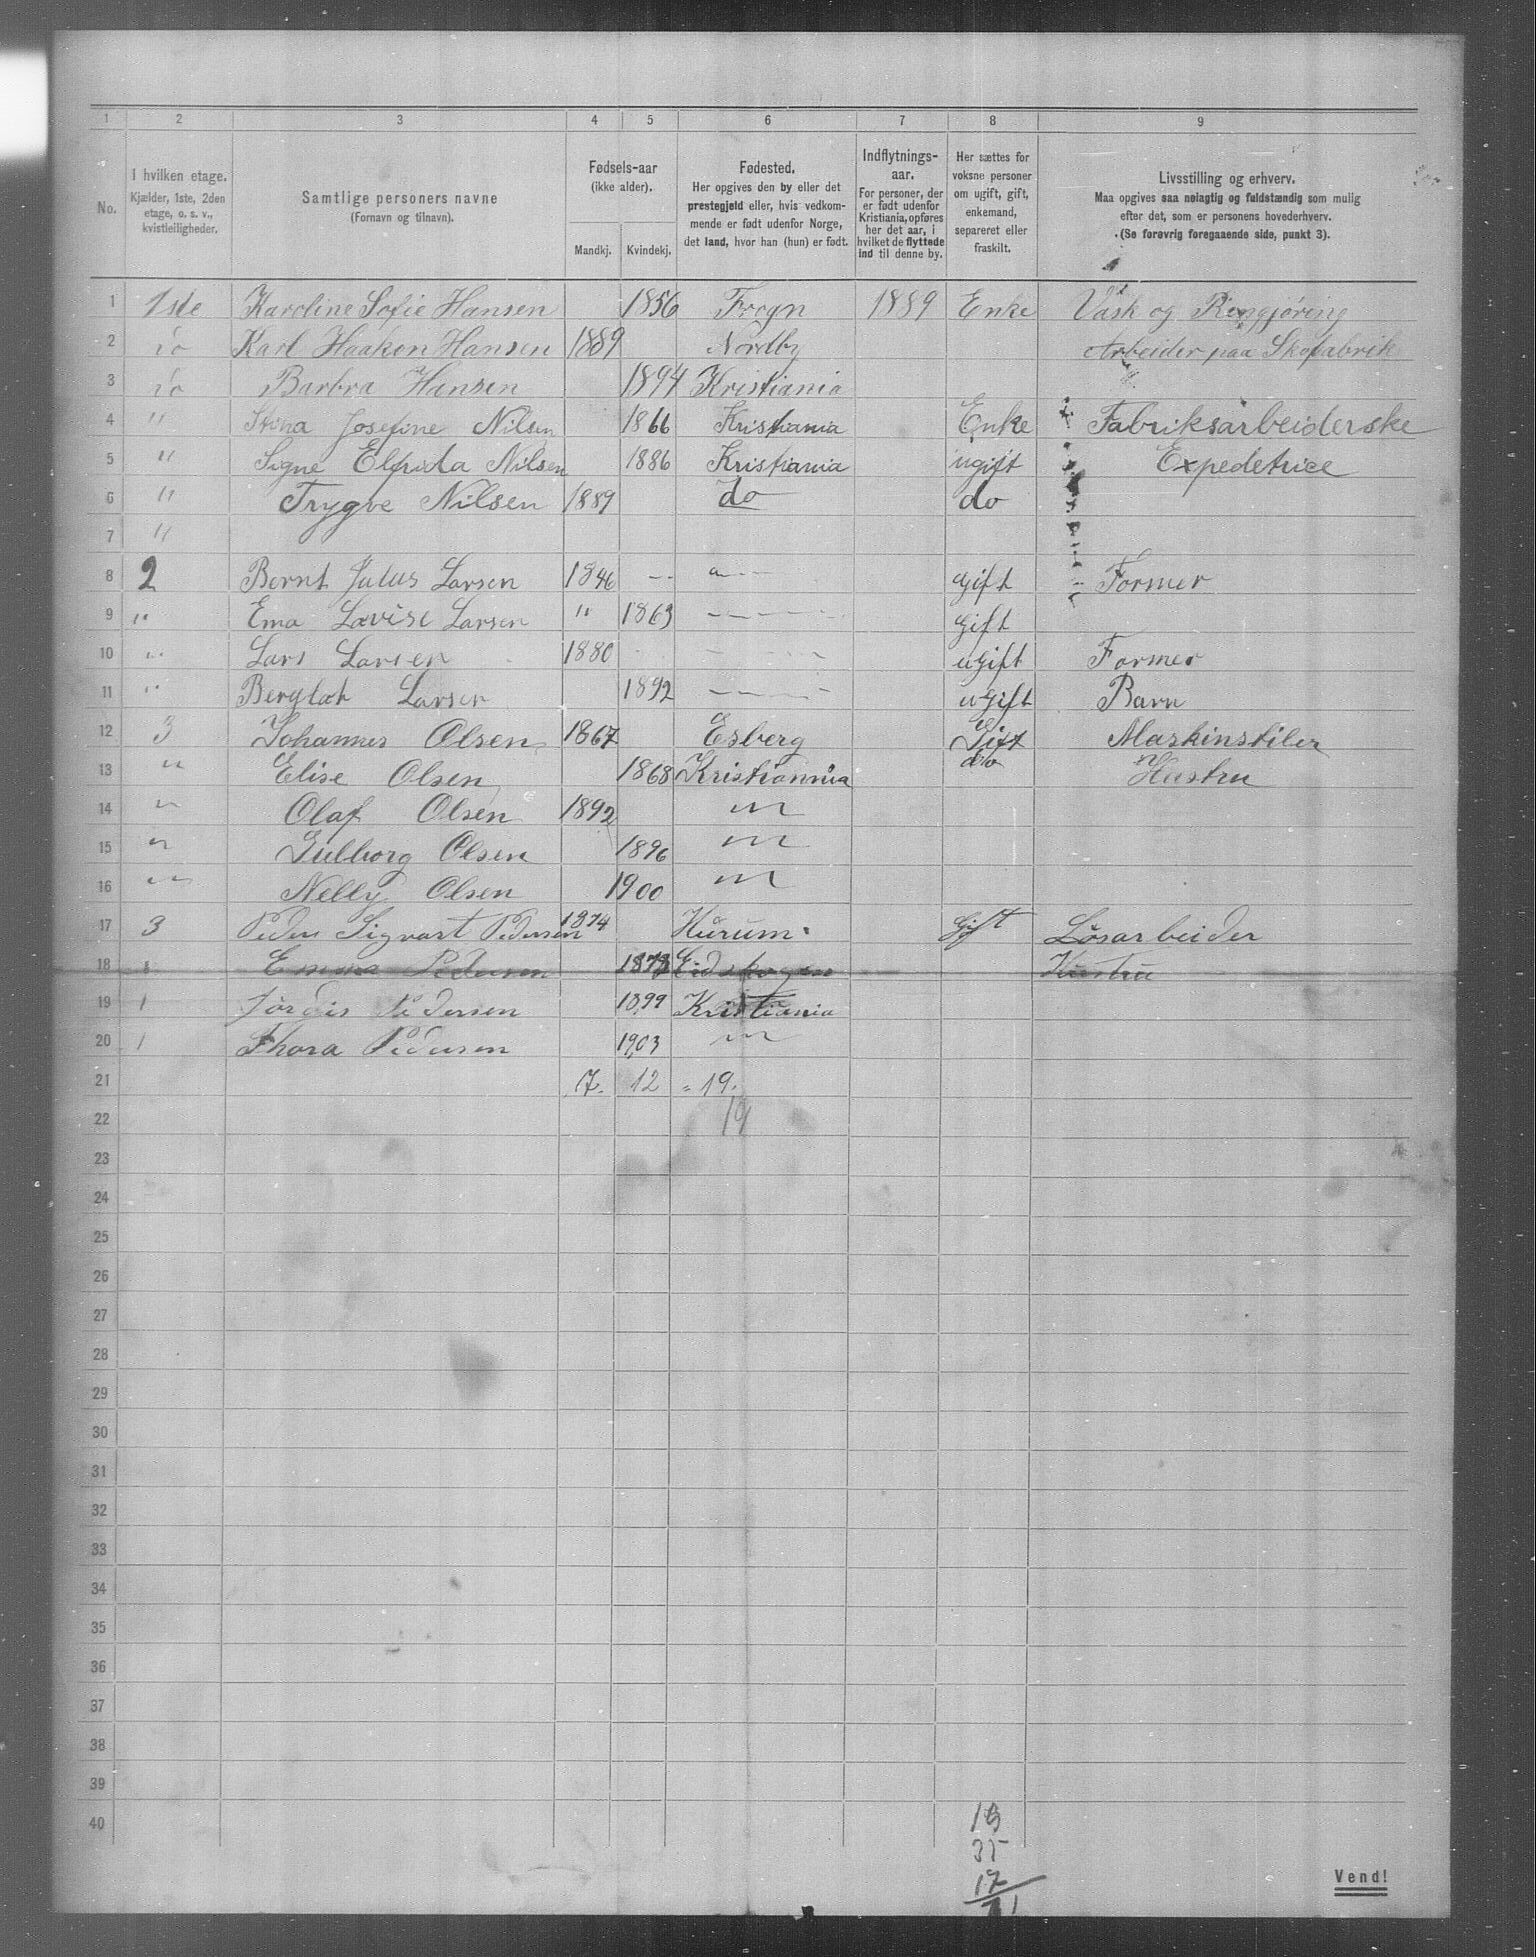 1 2 3 4 5 6 7 8 9
No.
I hvilken etage.
Kjælder, 1ste, 2den
etage, o. s. v.,
kvistleiligheder.
Samtlige personers navne
(Fornavn og tilnavn).
Fødsels-aar
(ikke alder).
Mandkj. Kvindekj.
Fødested.
Her opgives den by eller det
prestegjeld eller, hvis vedkom-
mende er født udenfor Norge,
det land, hvor han (hun) er født.
Indflytnings-
aar.
For personer, der
er født udenfor
Kristiania, opføres
her det aar, i
hvilket de flyttede
ind til denne by.
Her sættes for
voksne personer
om ugift, gift,
enkemand,
separeret eller
fraskilt.
Livsstilling og erhverv.
Maa opgives saa nøiagtig og fuldstændig som mulig
efter det, som er personens hovederhverv.
(Se forøvrig foregaaende side, punkt 3).
1 1ste Karoline Sofie Hansen 1856 Frogn 1889 Enke Vask og Rengjøring
2 do Karl Haakon Hansen 1889 Nordby Arbeider paa Skofabrik
3 do Barbra Hansen 1894 Kristiania
4 " Stina Josefine Nilsen 1866 Kristiania Enke Fabriksarbeiderske
5 " Signe Elfrida Nilsen 1886 Kristiania ugift Expedetrice
6 " Trygve Nilsen 1889 do do
7 "
8 2 Bernt Julus Larsen 1846 -- -- gift Former
9 " Ema Lovise Larsen " 1863 -- gift
10 " Lars Larsen 1880 -- ugift Former
11 " Larsen 1892 -- ugift Barn
12 3 Johannes Olsen 1867 Esberg Gift Maskinstiler
13 " Elise Olsen 1868 Kristiannia do Hustru
14 " Olaf Olsen 1892 "
15 " Gulborg Olsen 1896 "
16 " Nelly Olsen 1900 "
17 3 Peder Sigvart Pedersen 1874 Hurum Gift Løsarbeider
18 Emma Pedersen 1873 Eidskogen Hustru
19 1 Jordis Pedersen 1899 Kristiania
20 1 Thora Pedersen 1903 "
21 7. 12 = 19.
22 19
23
24
25
26
27
28
29
30
31
32
33
34
35
36
37
38
39
40
19
35
17
Vend!